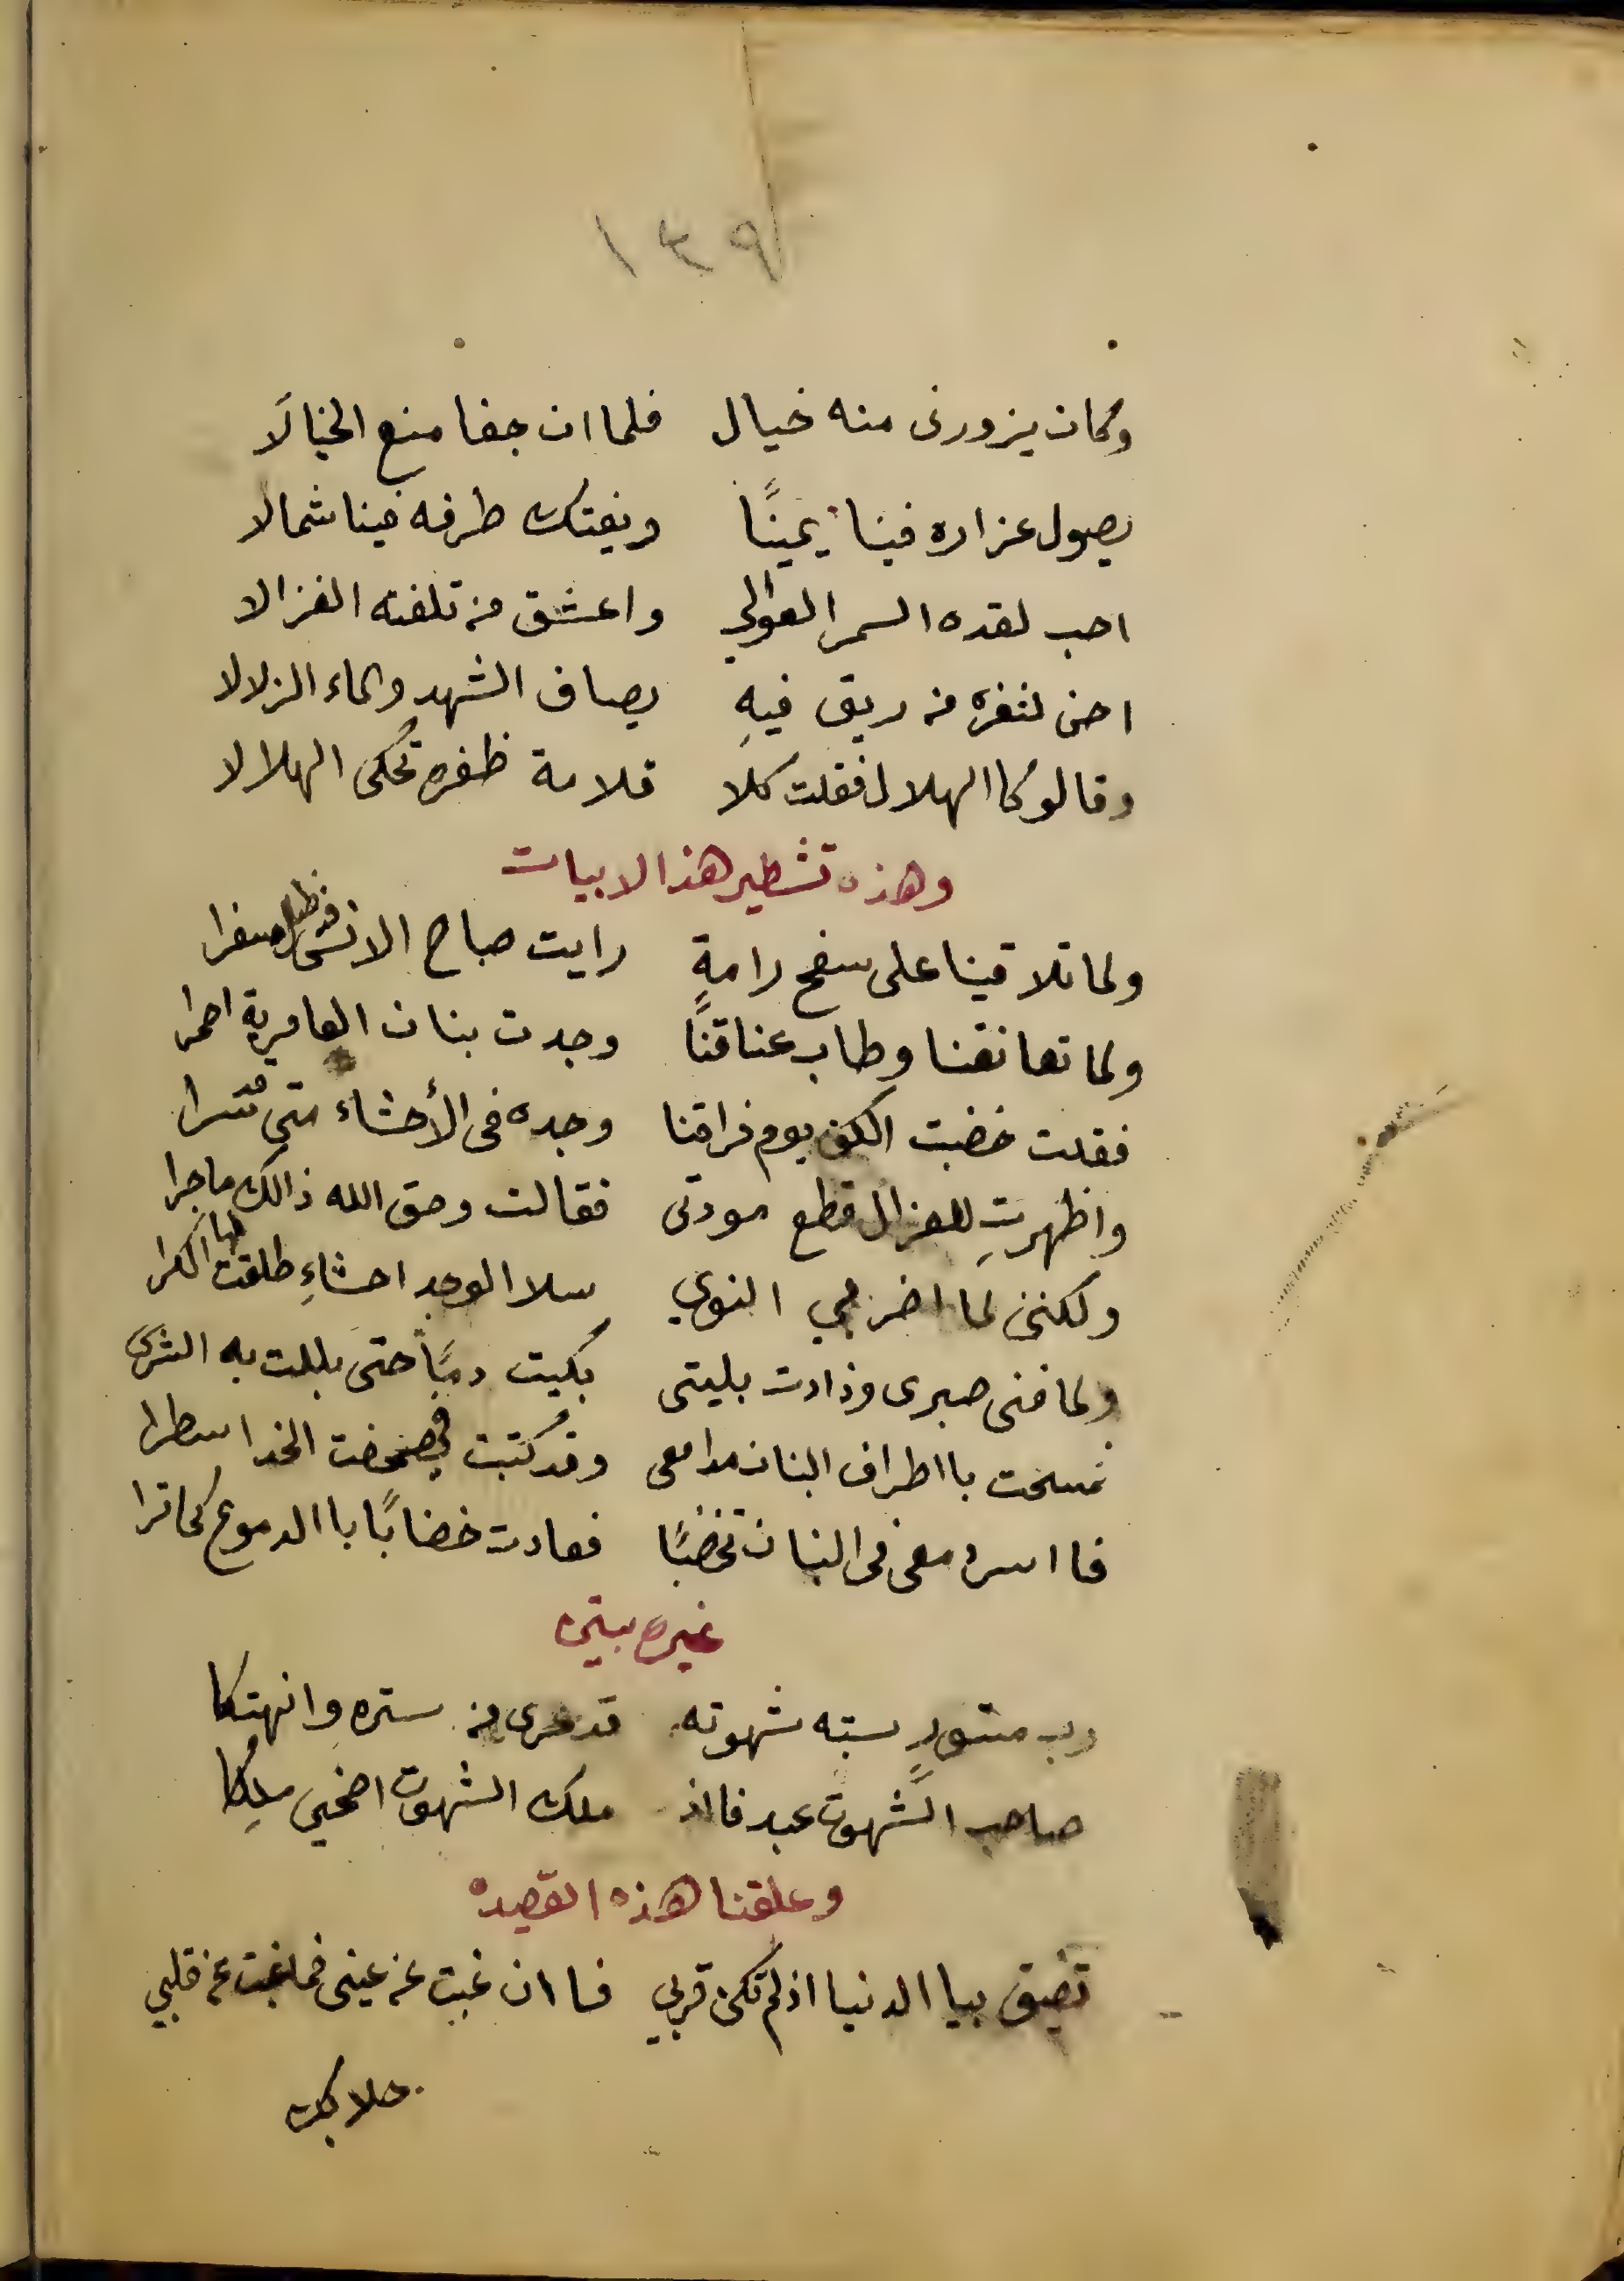 ١٣٩
وكان يزورنى منه خيال فلما ان جفا منع الخيالَا
يصول عزاره فينا يمينًا ويفتك طرفه فينا شمالا
احب لقده السمر العوالي واعشق من تلفته الغزالا
احن لثغره من ريق فيهِ يصاف الشهد والماء الزلالا
وقالو كما الهلال فقلت كلا قلامة ظفره تحكى الهلالا
وهذه تشطير هذا الابيات
ولما تلاقينا على سفح رامةٍ رايت صباح الانس قد ظل مسفرا
ولما تعانقنا وطاب عناقنًا وجدت بنان العامرية احمرا
فقلت خضبت الكف يوم فراقنا وجده فى الأحشاء متى قد سرا
واظهرتِ للعزال قطع مودتى فقالت وحق الله ذالك ماجرا
ولكننى لما اضر بي النوي سلا الوجد احشاءِ طلقت لها الكرا
ولما فنى صبرى وزادت بليتى بكيت دمًا حتى بللت به الثرى
نمسحت با اطراف البنان مدامعى وقد كتبت في صحفت الخد اسطرا
فا اسر دمعى فى البنان تخضبًا فعادت خضابًا با الدموع كما ترا
غيره بيتين
رب مستورٍ سبته شهوته قد عرى من ستره وانهتكا
صاحب الشهوت عبد فااذ ملك الشهوت اضحي ملِكا
وعلقنا هذه القصيده
تضيق بيا الدنيا اذ لم تكن قربي فا ان غبت عن عينى فما غبت عن قلبي